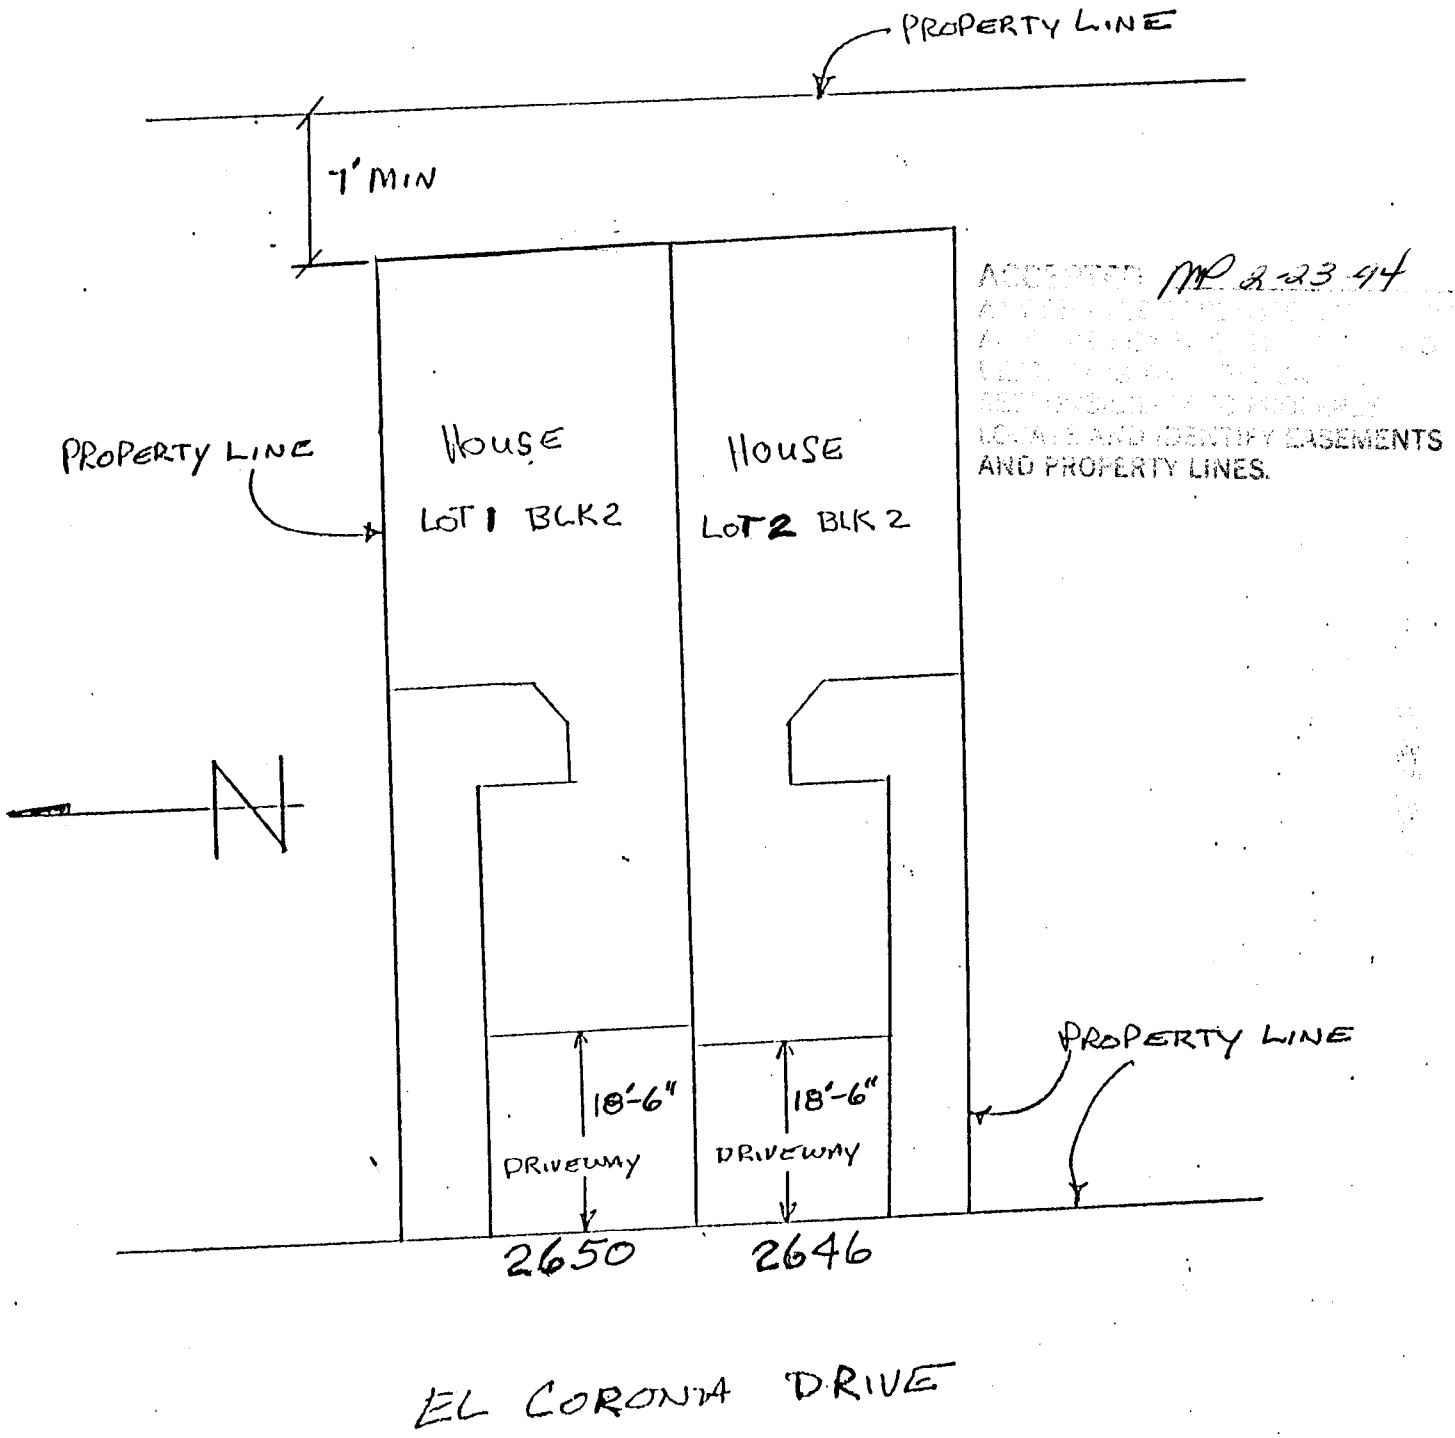 PROPERTY LINE
7' MIN
ACCEPTED MP 2-23-94
LOCATE AND IDENTIFY EASEMENTS
AND PROPERTY LINES.
PROPERTY LINE
HOUSE
LOT 1 BLK 2
HOUSE
LOT 2 BLK 2
N
PROPERTY LINE
18'-6"
DRIVEWAY
18'-6"
DRIVEWAY
2650
2646
EL CORONA DRIVE